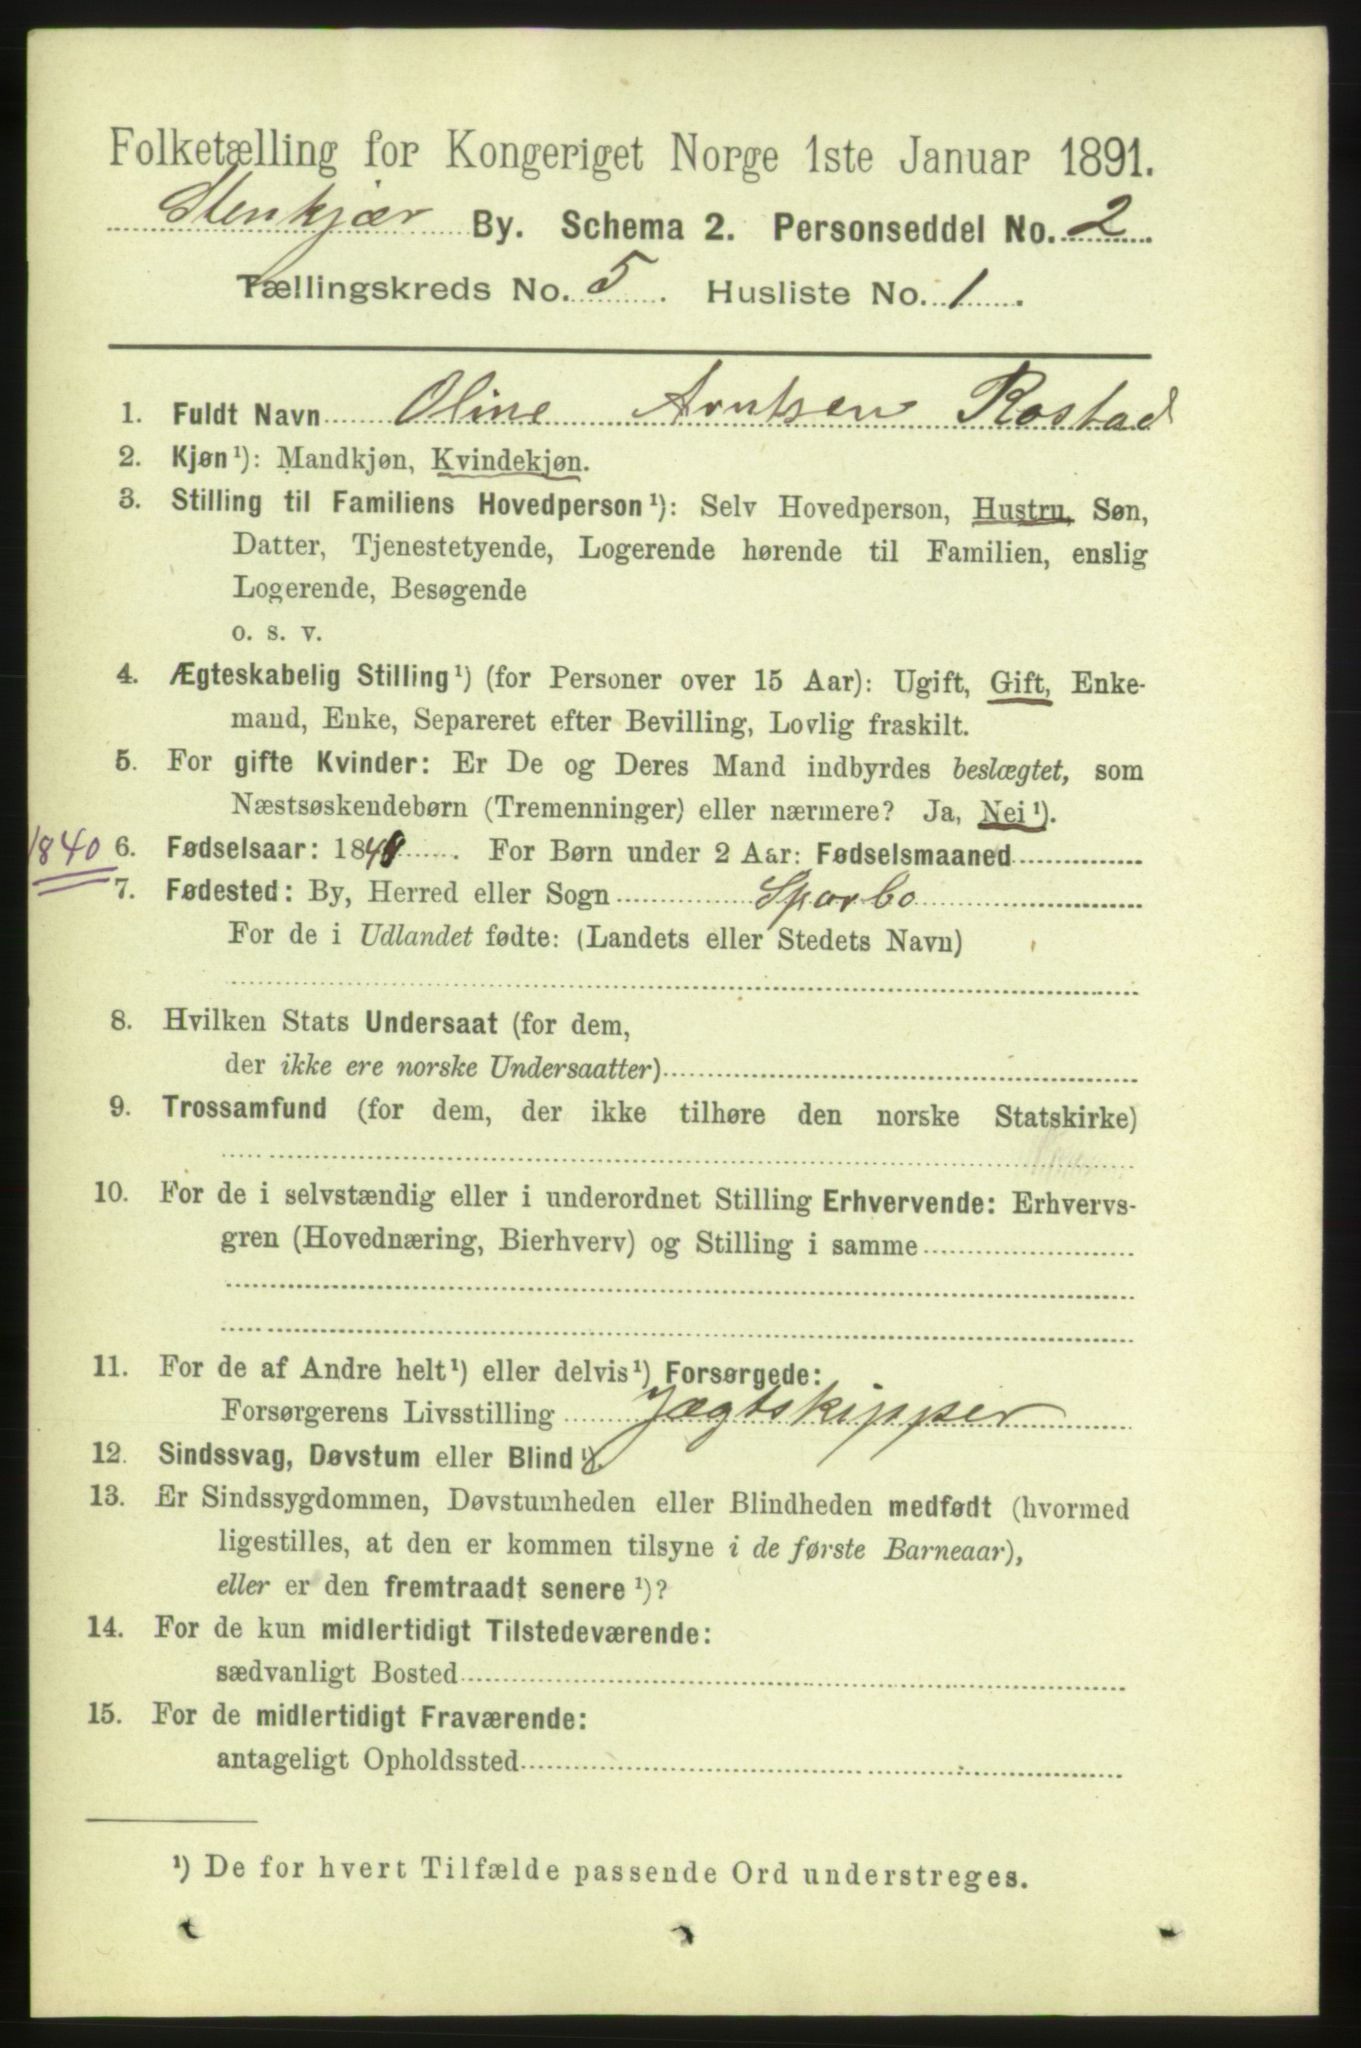 Folketælling for Kongeriget Norge 1ste Januar 1891.
Stenkjær By. Schema 2. Personseddel No. 2.
Tællingskreds No. 5. Husliste No. 1.
1. Fuldt Navn Oline Arntsen Rostad
2. Kjøn¹): Mandkjøn, Kvindekjøn.
3. Stilling til Familiens Hovedperson¹): Selv Hovedperson, Hustru, Søn,
Datter, Tjenestetyende, Logerende hørende til Familien, enslig
Logerende, Besøgende
o. s. v.
4. Ægteskabelig Stilling¹) (for Personer over 15 Aar): Ugift, Gift, Enke-
mand, Enke, Separeret efter Bevilling, Lovlig fraskilt.
5. For gifte Kvinder: Er De og Deres Mand indbyrdes beslægtet, som
Næstsøskendebørn (Tremenninger) eller nærmere? Ja, Nei¹).
1840 6. Fødselsaar: 1840. For Børn under 2 Aar: Fødselsmaaned
7. Fødested: By, Herred eller Sogn Sparbo
For de i Udlandet fødte: (Landets eller Stedets Navn)
8. Hvilken Stats Undersaat (for dem,
der ikke ere norske Undersaatter)
9. Trossamfund (for dem, der ikke tilhøre den norske Statskirke)
10. For de i selvstændig eller i underordnet Stilling Erhvervende: Erhvervs-
gren (Hovednæring, Bierhverv) og Stilling i samme
11. For de af Andre helt¹) eller delvis¹) Forsørgede:
Forsørgerens Livsstilling Jægtskipper
12. Sindssvag, Døvstum eller Blind¹).
13. Er Sindssygdommen, Døvstumheden eller Blindheden medfødt (hvormed
ligestilles, at den er kommen tilsyne i de første Barneaar),
eller er den fremtraadt senere¹)?
14. For de kun midlertidigt Tilstedeværende:
sædvanligt Bosted
15. For de midlertidigt Fraværende:
antageligt Opholdssted
¹) De for hvert Tilfælde passende Ord understreges.